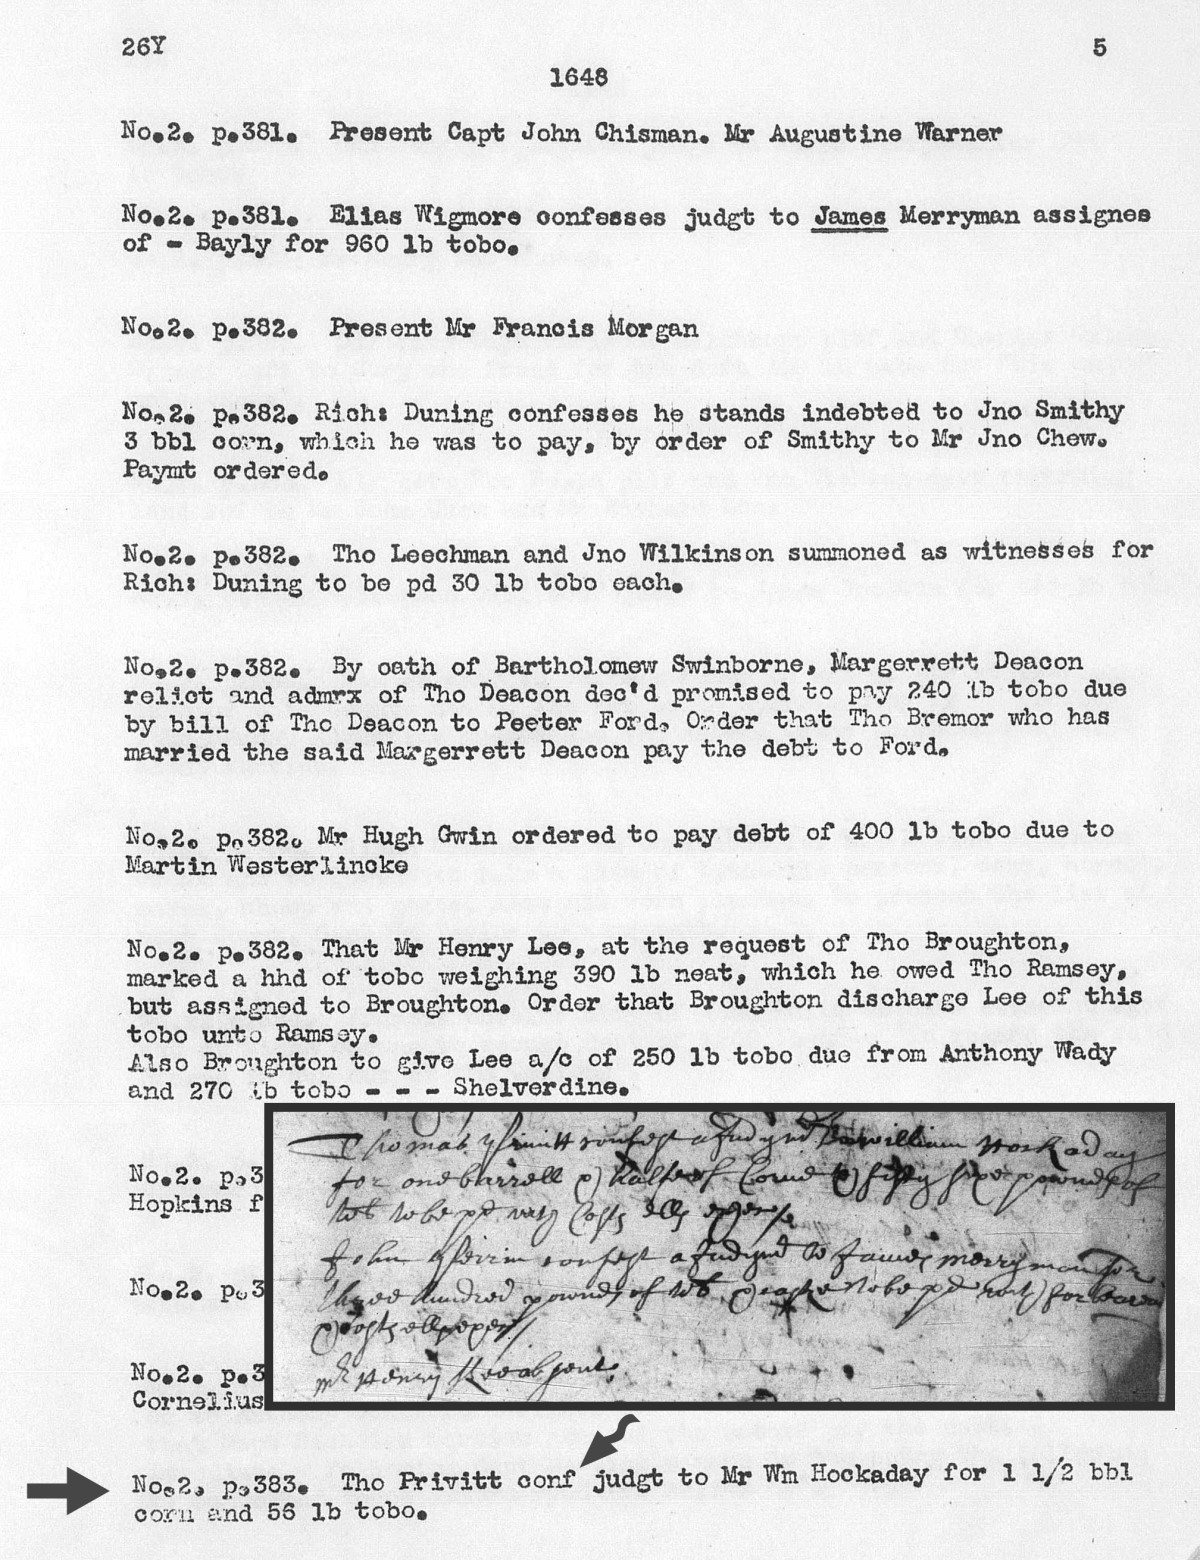 26Y 5
1648
No.2. p.381. Present Capt John Chisman. Mr Augustine Warner
No.2. p.381. Elias Wigmore confesses judgt to James Merryman assignes
of - Bayly for 960 lb tobo.
No.2. p.382. Present Mr Francis Morgan
No.2. p.382. Rich: Duning confesses he stands indebted to Jno Smithy
3 bbl corn, which he was to pay, by order of Smithy to Mr Jno Chew.
Paymt ordered.
No.2. p.382. Tho Leechman and Jno Wilkinson summoned as witnesses for
Rich: Duning to be pd 30 lb tobo each.
No.2. p.382. By oath of Bartholomew Swinborne, Margerrett Deacon
relict and admrx of Tho Deacon dec'd promised to pay 240 lb tobo due
by bill of Tho Deacon to Peeter Ford. Order that Tho Bremor who has
married the said Margerrett Deacon pay the debt to Ford.
No.2. p.382. Mr Hugh Gwin ordered to pay debt of 400 lb tobo due to
Martin Westerlincke
No.2. p.382. That Mr Henry Lee, at the request of Tho Broughton,
marked a hhd of tobo weighing 390 lb neat, which he owed Tho Ramsey,
but assigned to Broughton. Order that Broughton discharge Lee of this
tobo unto Ramsey.
Also Broughton to give Lee a/c of 250 lb tobo due from Anthony Wady
and 270 lb tobo - - - Shelverdine.
Thomas confest a Judgmt william Hockaday
for one barrell halfe of Corne fifty sixe pounds of
tob to be pd
John confest a Judgmt to James merryman for
three hundred pounds of tob to be pd
mr Henry Lee absent
No.2. p.3
Hopkins f
No.2. p.3
No.2. p.3
Cornelius
No.2. p.383. Tho Privitt conf judgt to Mr Wm Hockaday for 1 1/2 bbl
corn and 56 lb tobo.